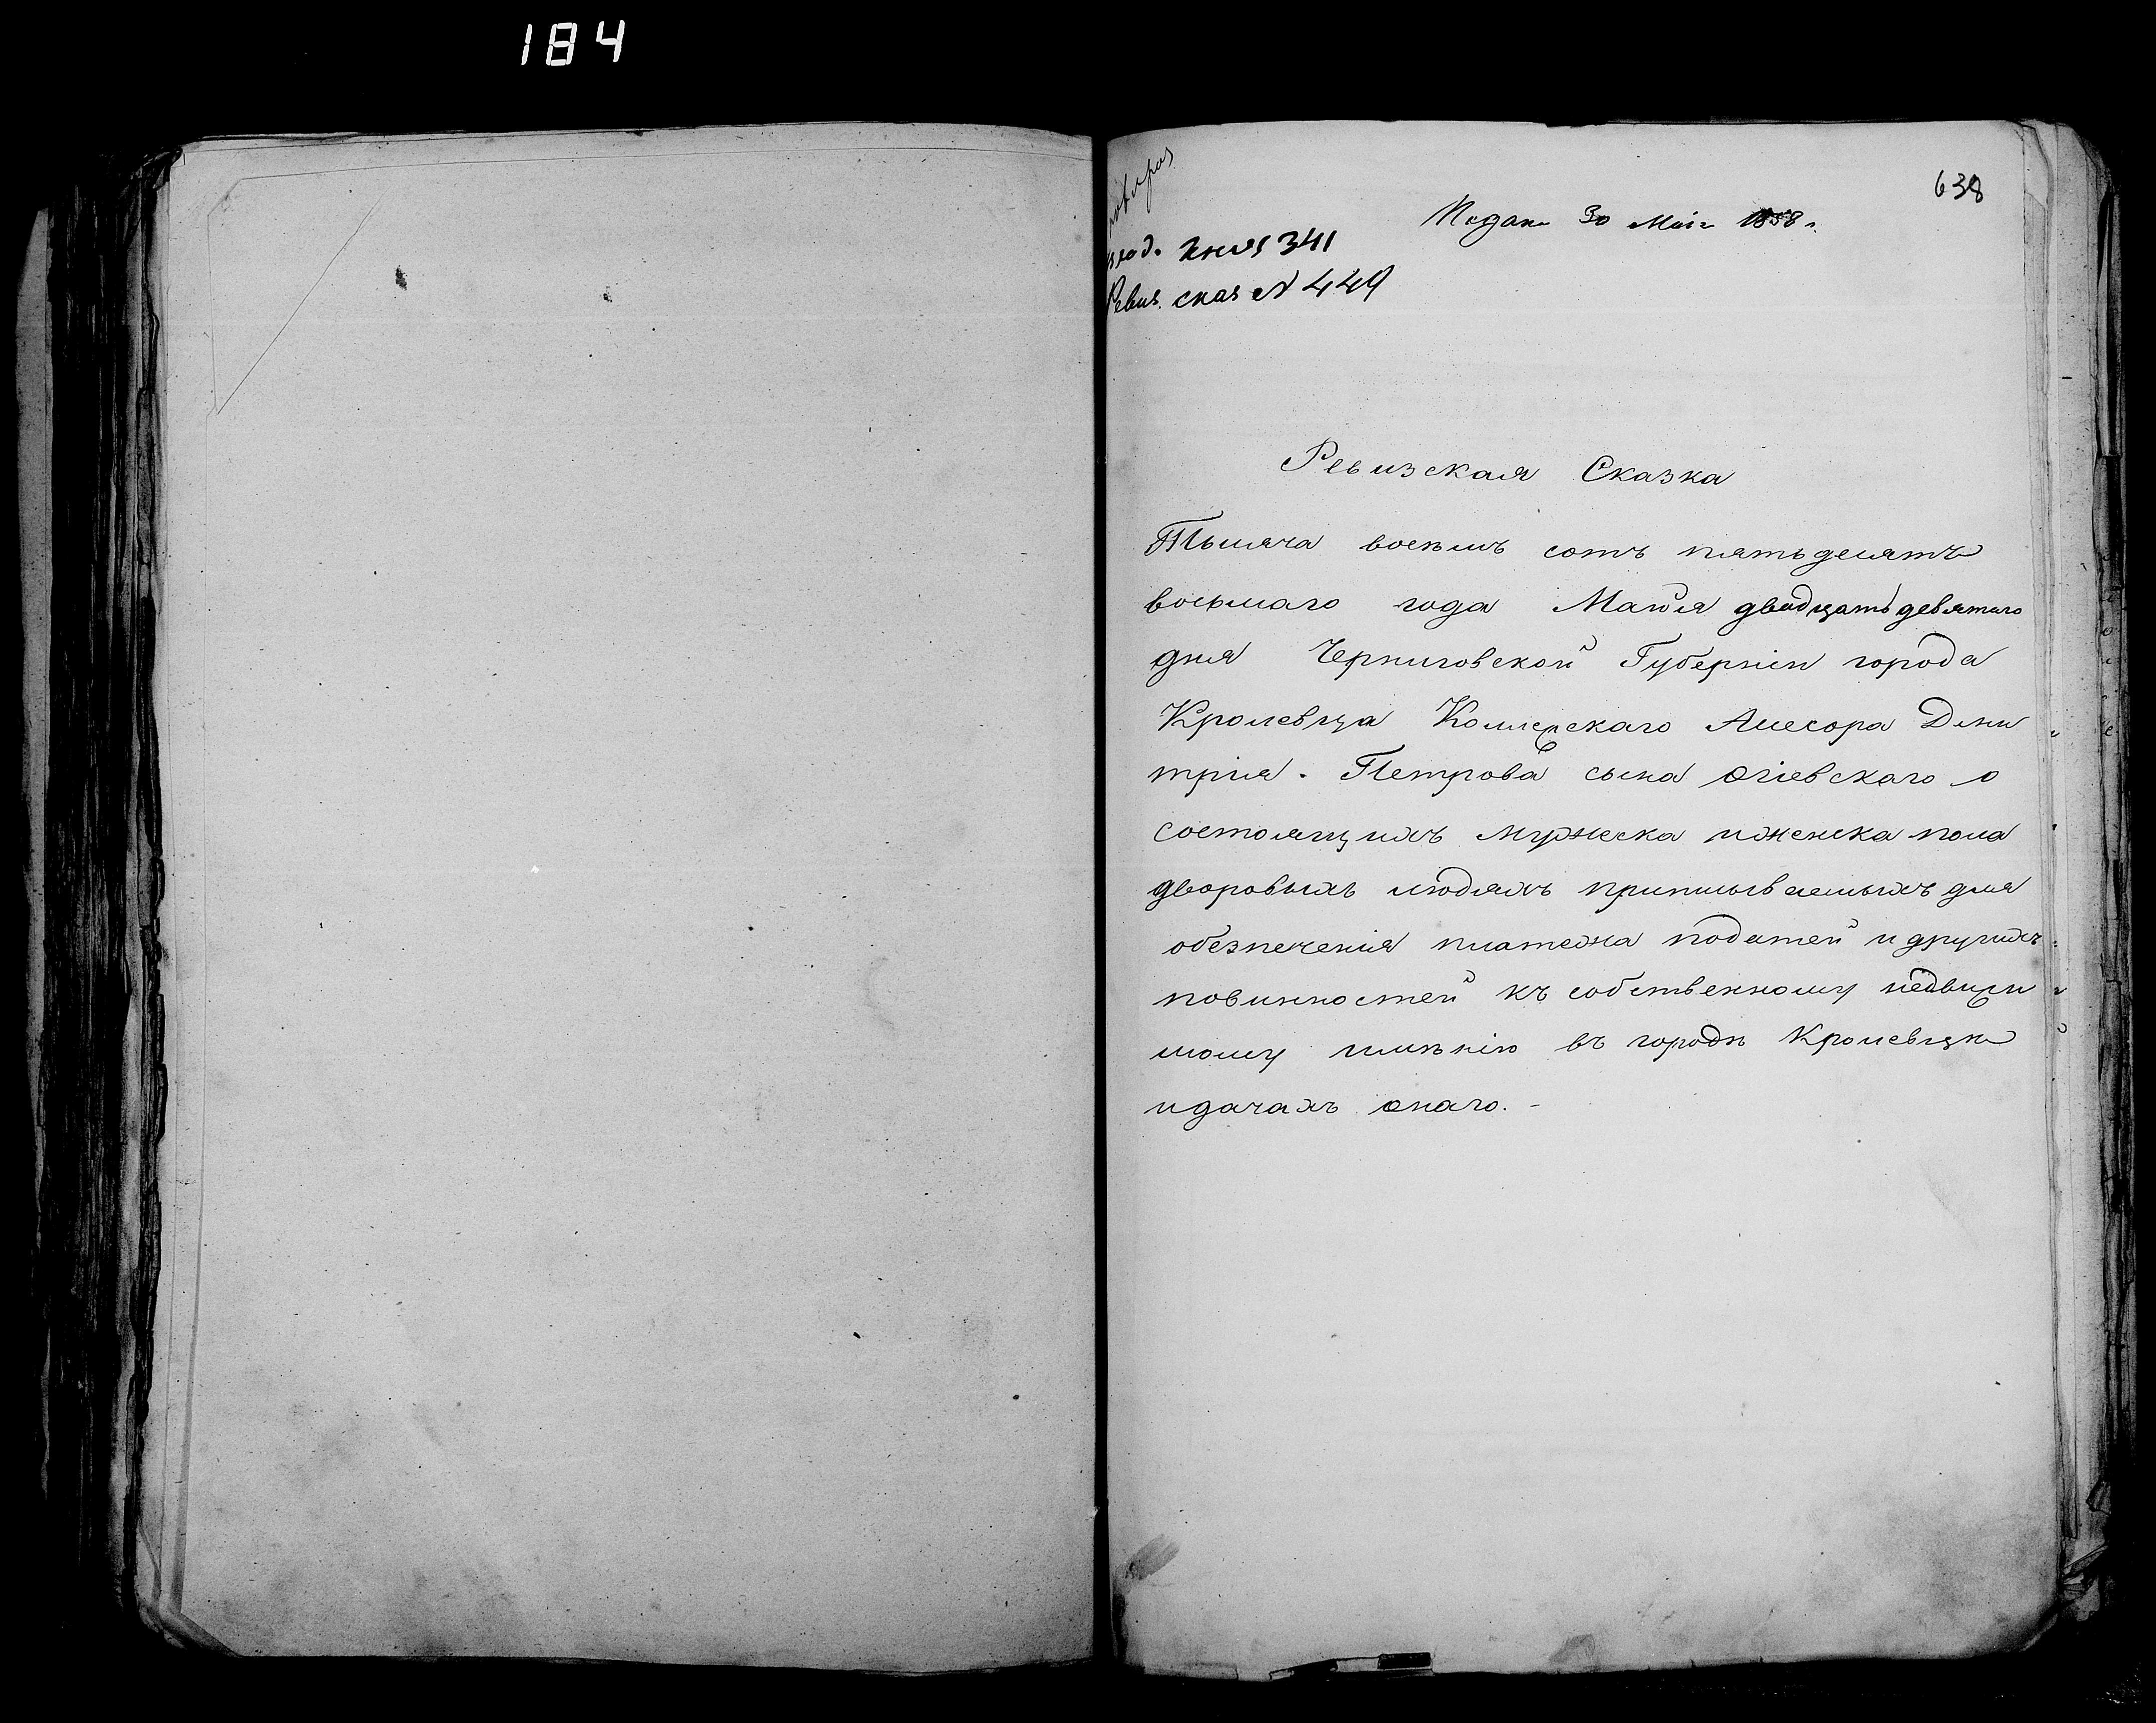 184
638
Подан 30 Маія 1858 г.
вход. книг 341
Ревиз. сказ № 449
Ревизская Сказка
Тысяча восемь сотъ пятьдесятъ
восьмаго года Маія двадцать девятого
дня Черниговской Губерніи города
Кролевца Коллежскаго Ассесора Дми
трія Петрова сына Огіевскаго о
состоящихъ мужеска и женска пола
дворовыхъ людяхъ приписываемыхъ для
обезпеченія платежа податей и другихъ
повинностей къ собственному недвижи
мому имѣнію въ городѣ Кролевцѣ
и дачахъ онаго. -